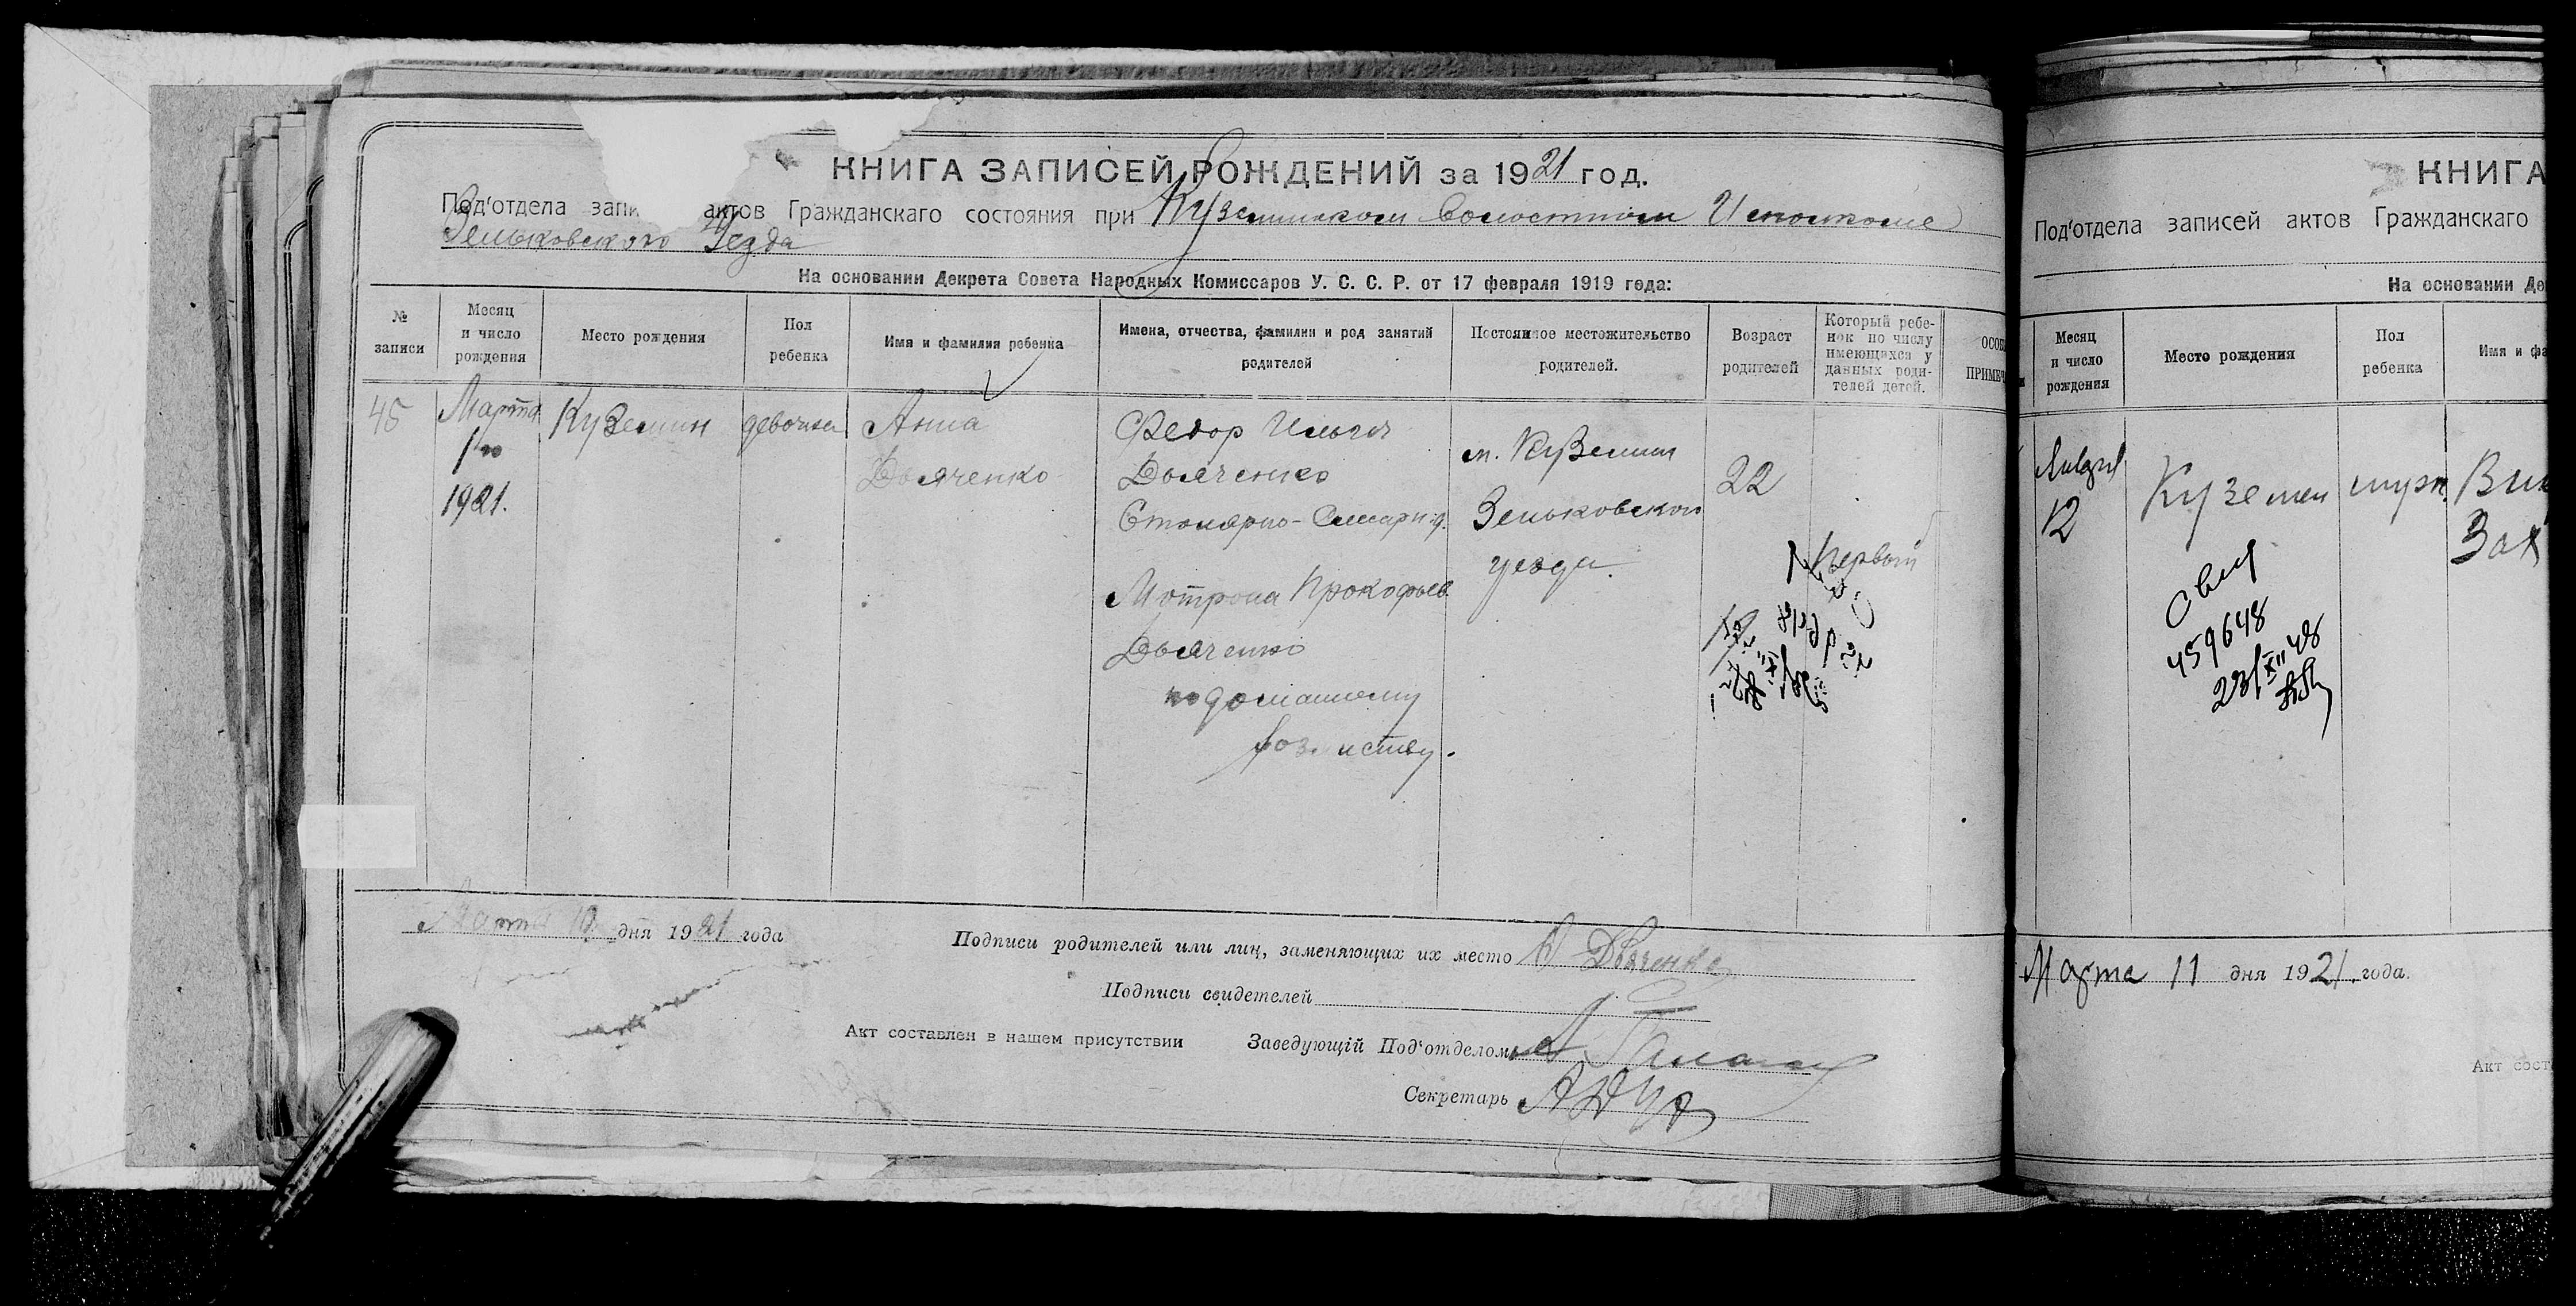 КНИГА ЗАПИСЕЙ РОЖДЕНИЙ за 1921 год.
Под'отдела запи актов Гражданскаго состояния при Куземинском Волостном Исполкоме
Зеньковского Уезда
На основании Декрета Совета Народных Комиссаров У. С. С. Р. от 17 февраля 1919 года:
№ записи
Месяц и число рождения
Место рождения
Пол ребенка
Имя и фамилия ребенка
Имена, отчества, фамилии и род занятий родителей
Постоянное местожительство родителей.
Возраст родителей
Который ребенок по числу имеющихся у данных родителей детей.
45
Марта
1го
1921.
Куземин
девочка
Анна
Дьяченко
Федор Ильич
Дьяченко
Столярно-Слесарн.
Мотрона Прокофьев.
Дьяченко
по домашнему
хозяйству.
м. Куземин
Зеньковского
уезда.
22
Первый
Марта 10 дня 1921 года
Подписи родителей или лиц, заменяющих их место Дьяченко
Подписи свидетелей
Акт составлен в нашем присутствии Заведующій Под'отделомъ
Секретарь
КНИГА
Под'отдела записей актов Гражданскаго
На основании Де
Месяц и число рождения
Место рождения
Пол ребенка
Имя и фа
12
Куземин
муж.
Зах
459648
23/XII 48
Марта 11 дня 1921 года.
Акт сост